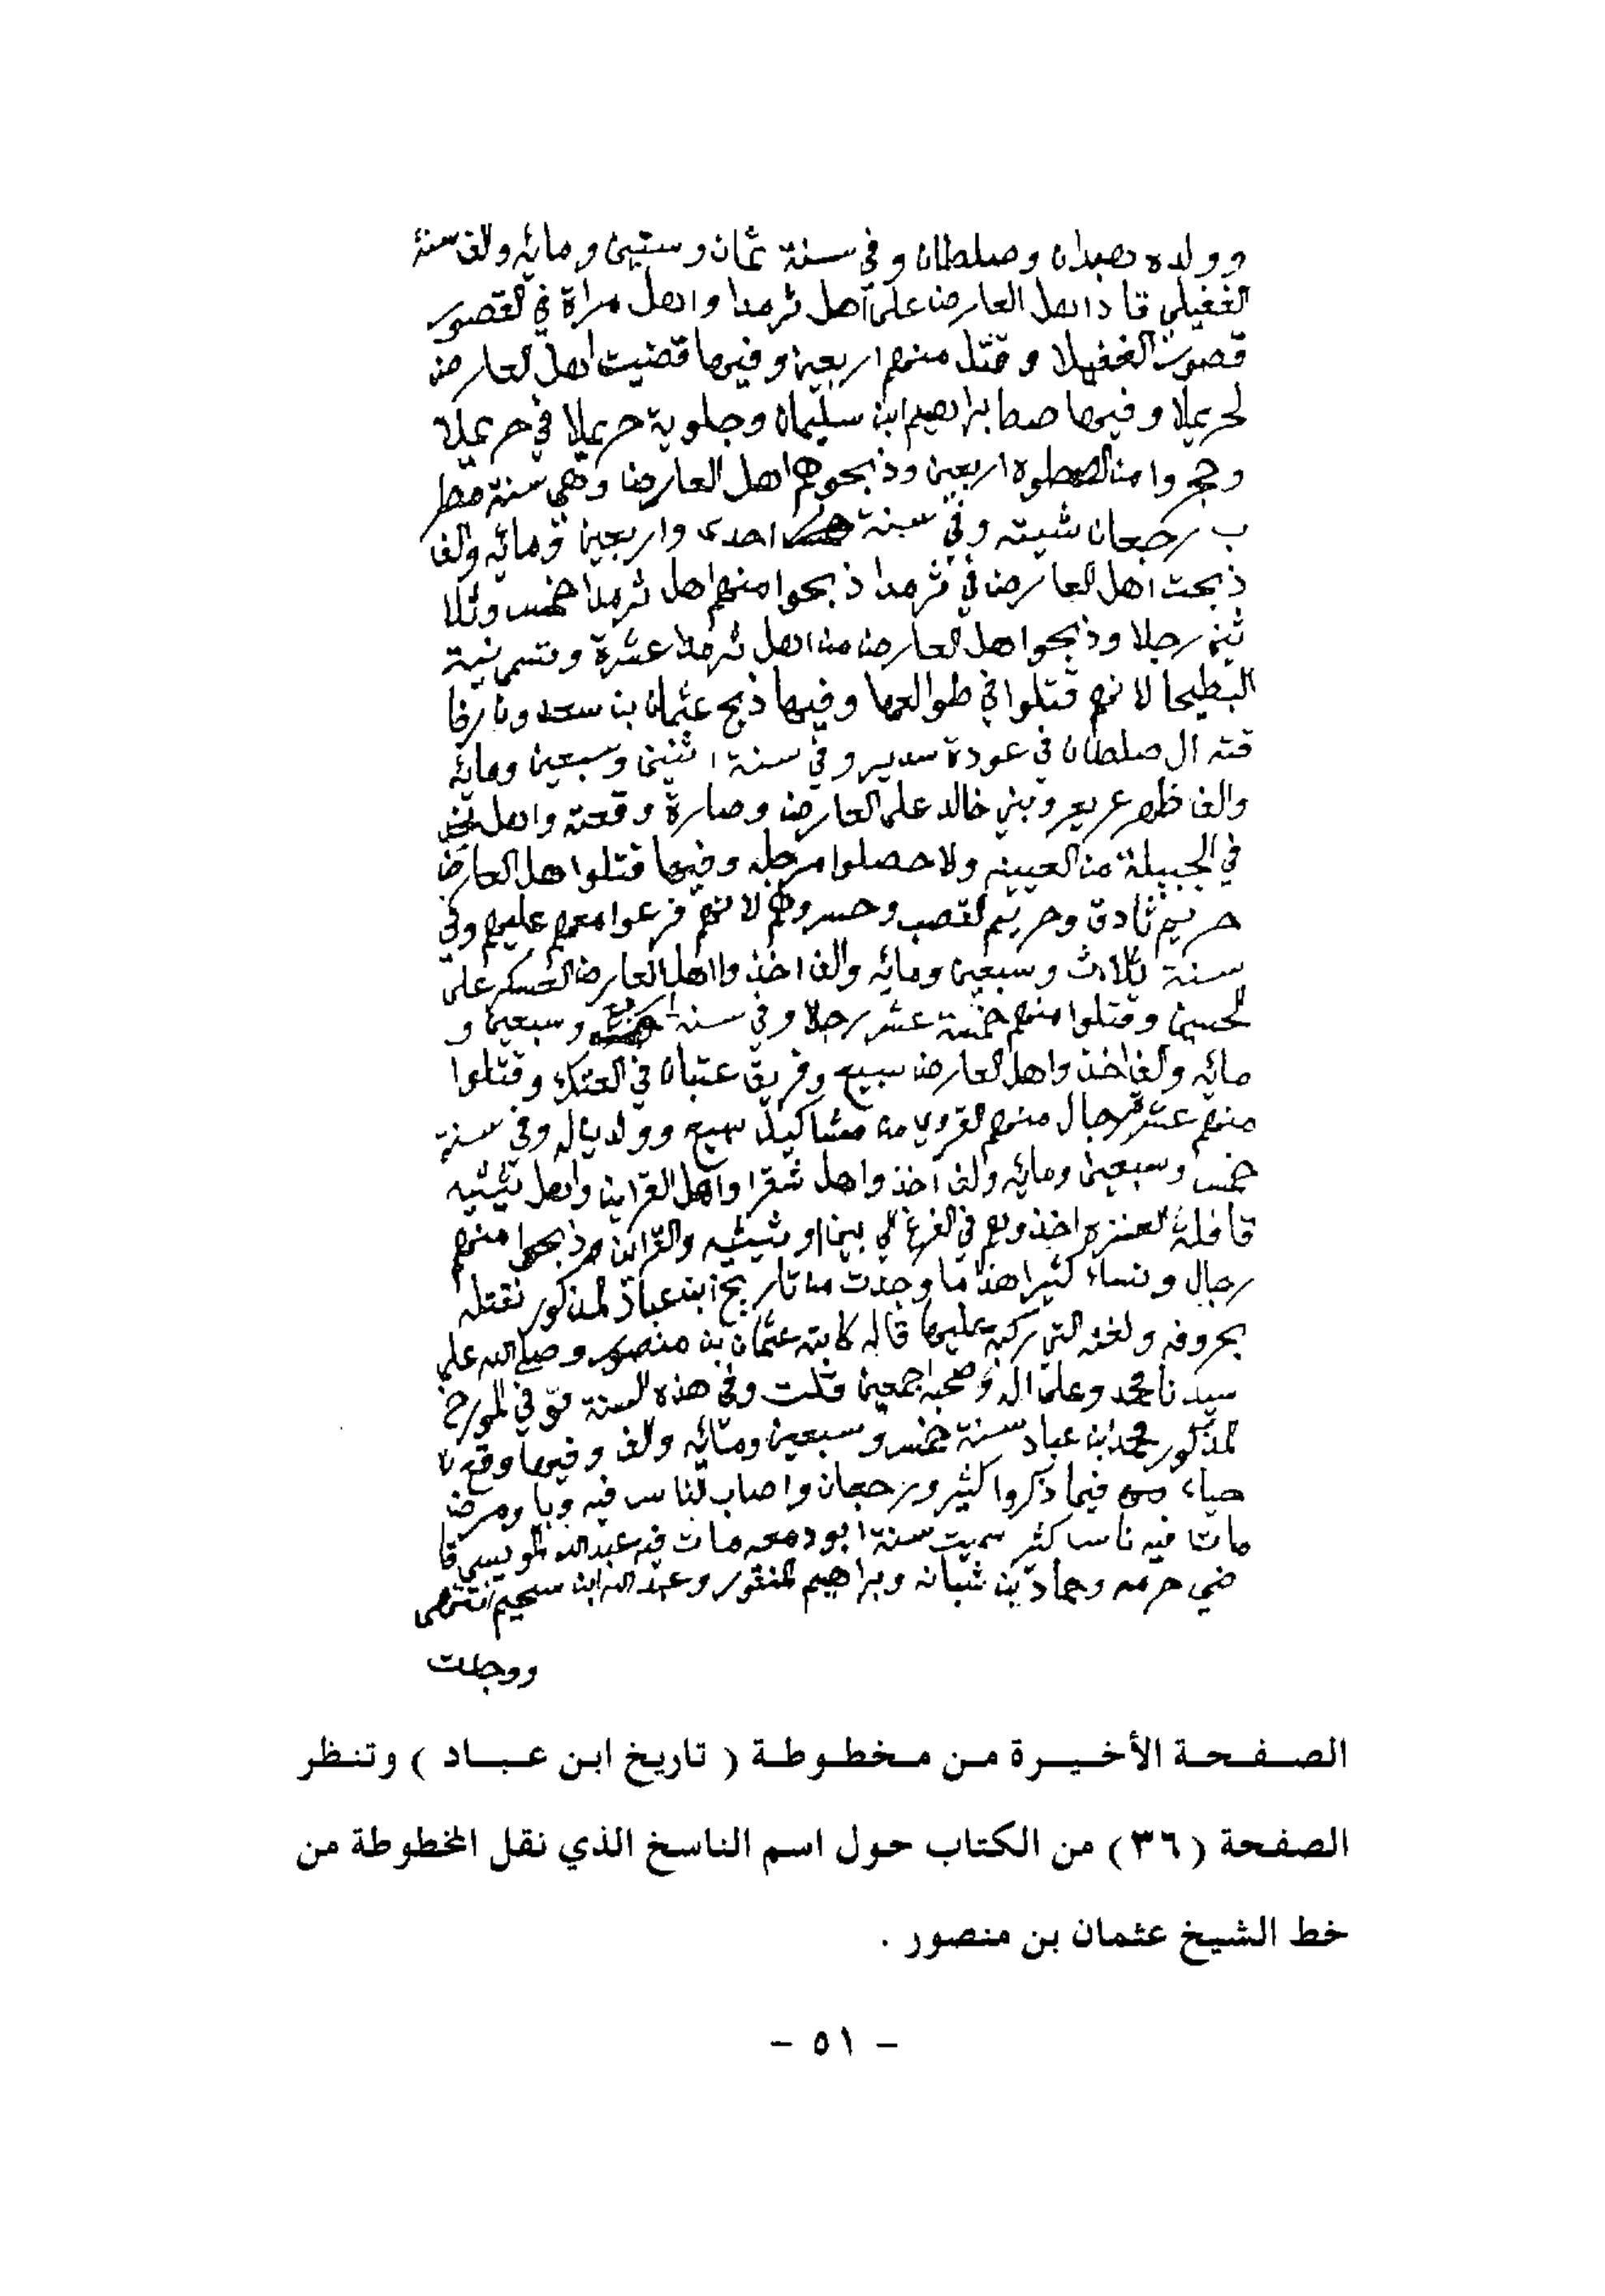 وولده دهيدان وصلطان وفي سنة ثمان وستين ومايه والف سنة
الغفيلي قادا اهل العارض على اهل ثرمدا واهل مراة في القصور
قصور الغفيلا وقتل منهم اربعين وفيها قضيت اهل العارض
لحريملا وفيها صطا براهيم ابن سليمان وجلوية حريملا في حريملا
وحجروا من الصطوه اربعين وذبحوهم اهل العارض وهي سنة مطر
ب رجعان شيته وفي سنة احدى واربعين ومائه والف
ذبحت اهل العارض في ثرمدا ذبحوا منهم اهل ثرمدا خمس وثلا
ثين رجلا وذبحوا هل العارض من اهل ثرمدا عشرة وتسمى سنية
البطيحا لانهم قتلوا في طوالعها وفيها ذبح عثمان بن سعدون ارفا
قته ال صلطان في عودة سدير وفي سنة اثنين وسبعين ومايه
والف ظهر عريعر وبني خالد على العارض وصارة وقعته واهل نجد
في الجبيلة من العيينه ولا حصلوا مرجله وفيها قتلوا هل العارض
حريم ثادق وحريم القصب وحسروهم لانهم فزعوا معهم عليهم وفي
سنة ثلاث وسبعين ومائه والف اخذوا اهل العارض العسكر على
الحسين وقتلوا منهم خمسة عشر رجلا وفي سنة اربع وسبعين و
مائه والف اخذوا هل العارض سبيع وفريق عتبان في العتك وقتلوا
منهم عشر رجال منهم القروي من مشاكيل سبيع وولد يباله وفي سنة
خمس وسبعين ومائه والف اخذوا هل شقرا واهل القراين واهل ثيثيه
قافلة لعنزه اخذوهم في الفرغ اللي بينها وثيثيه والقراين وذبحوا منهم
رجال ونساء كثير هذا ما وجدت من تاريخ ابن عباد المذكور نقتله
بحروفه ولغته التي ركبه عليها قاله كاتبه عثمان بن منصور وصلى الله على
سيدنا محمد وعلى اله وصحبه اجمعين قلت وفي هذه السنة توفي المورخ
المذكور محمد ابن عباد سنة خمس وسبعين ومائه والف وفيها وقع
حياء فيما ذكروا كثير ورجعان واصاب الناس فيه وبا ومرض
مات فيه ناس كثر سميت سنة ابو دمعه مات فيه عبدالله المويسي قا
ضي حرمه وحماد بن شبانه وبراهيم المنقور وعبدالله ابن سحيم انتهى
ووجدت
الصفحة الأخيرة من مخطوطة ( تاريخ ابن عباد ) وتنظر
الصفحة (٣٦) من الكتاب حول اسم الناسخ الذي نقل المخطوطة من
خط الشيخ عثمان بن منصور .
- ٥١ -